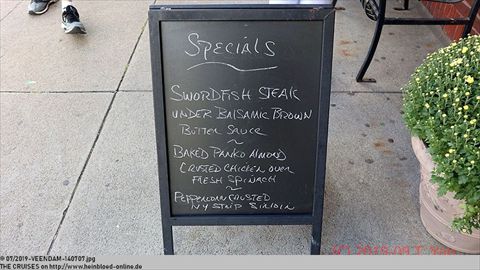 Specials
SWORDFISH STEAK
UNDER BALSAMIC BROWN
BUTTER SAUCE
~
BAKED PANKO ALMOND
CRUSTED CHICKEN OVER
FRESH SPINACH
~
PEPPERCORN CRUSTED
NY STRIP SIRLOIN
© 07/2019-VEENDAM-140T07.jpg
THE CRUISES on http://www.heinbloed-online.de